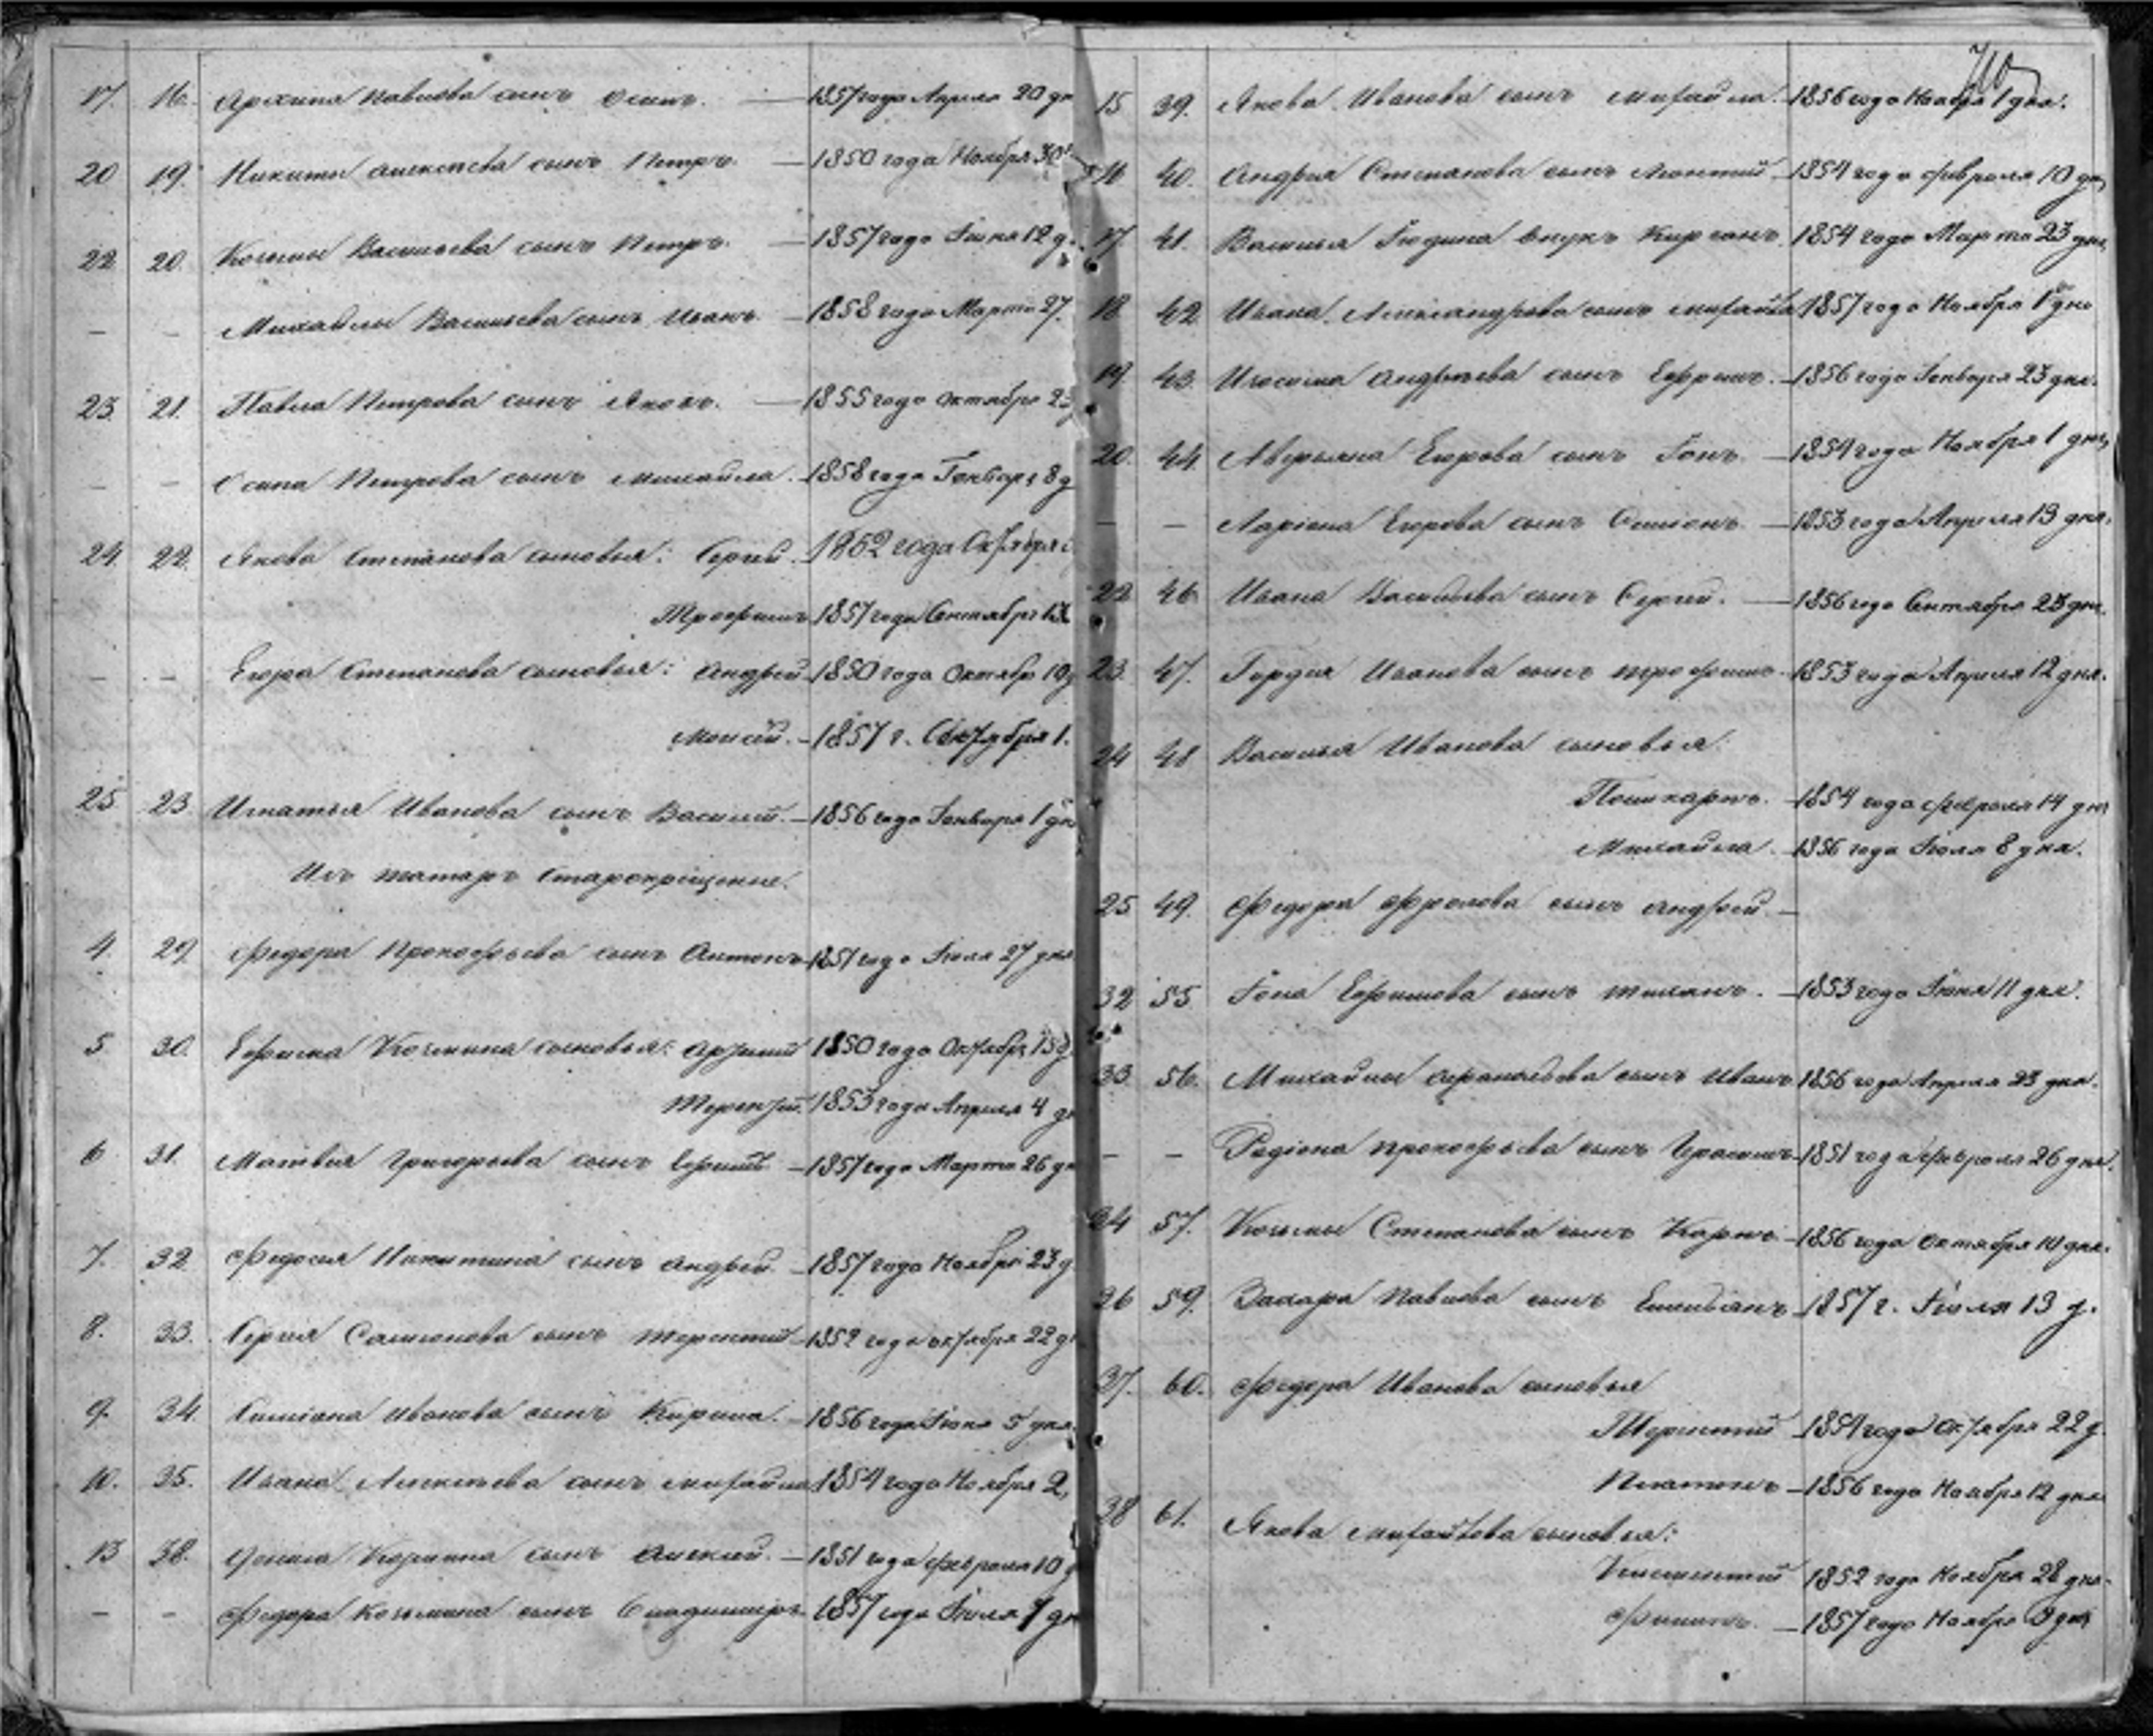 17. 16. Архипа Павлова сынъ Осипъ. — 1857 года Апреля 20 дн
20 19. Никиты Алексѣева сынъ Петръ. — 1850 года Ноября 30
22 20. Козьмы Васильева сынъ Петръ. — 1857 года Іюня 12 д.
— — Михайлы Васильева сынъ Иванъ. — 1858 года Марта 27.
23. 21. Павла Петрова сынъ Яковъ. — 1855 года Октября 23
— — Осипа Петрова сынъ Михайла. — 1858 года Генваря 8 д
24. 22. Якова Степанова сыновья: Сергѣй. 1852 года Октября
Трофимъ 1857 года Сентября
— — Егора Степанова сыновья: Андрей 1850 года Октября 19 д
Моисей. — 1857 г. Сентября 1.
25 23 Игнатья Иванова сынъ Василій. — 1856 года Генваря 1 дн
Изъ татаръ Старокрещеные.
4. 29. Федора Прокофьева сынъ Антонъ — 1851 года Іюля 27 дня
5. 30. Ефрема Козмина сыновья: Артемій 1850 года Октября 15 д
Терентій. 1853 года Апреля 4 дн
6 31. Матвѣя Григорьева сынъ Ефимъ — 1857 года Марта 26 дн
7. 32. Федосья Никитина сынъ Андрей. — 1857 года Ноября 23 д
8. 33. Сергѣя Самсонова сынъ Терентий — 1852 года октября 22 д
9. 34. Иванова сынъ Кирила. — 1856 года Іюня 5 дня
10. 35. Ивана Алексѣева сынъ Михайла 1854 года Ноября 2,
13 38. Козмина сынъ Алексей. — 1851 года февраля 10 д
— — Федора Козьмина сынъ Владимиръ 1857 года Іюля 9 дн
70
15 39. Якова Иванова сынъ Михайла. 1856 года Ноября 1 дня.
16 40. Андрея Степанова сынъ Леонтий — 1854 года февраля 10 дн,
17 41. Василья Юдина внукъ 1854 года Марта 23 дня,
18 42 Ивана Александрова сынъ Михайла 1857 года Ноября 1 дня
19. 43. Андрѣева сынъ Ефремъ. — 1856 года Генваря 23 дня.
20. 44. Аверьяна Егорова сынъ Іонъ. — 1854 года Ноября 1 дня,
— — Ларіона Егорова сынъ Семіонъ. — 1853 года Апреля 13 дня.
22 46 Ивана Васильева сынъ Сергѣй. — 1856 года Сентября 23 дня.
23. 47. Гордея Иванова сынъ Трофимъ — 1853 года Апреля 12 дня.
24 48 Василья Иванова сыновья:
Поликарпъ. — 1854 года февраля 14 дня
Михайла. — 1856 года Іюля 8 дня.
25 49. Федора Фролова сынъ Андрей —
32 55. Іона Ефимова сынъ — 1853 года Іюня 11 дня.
33 56. Михайлы Афонасьева сынъ Иванъ 1856 года Апреля 23 дня.
— — Радіона Прокофьева сынъ Герасимъ — 1851 года февраля 26 дня.
34 57. Козьмы Степанова сынъ Карпъ — 1856 года Октября 10 дня.
36 59. Захара Павлова сынъ Емельянъ — 1857 г. Іюля 13 д.
37. 60. Федора Иванова сыновья
Терентий — 1854 года Октября 22 д.
Платонъ — 1856 года Ноября 12 дня
38 61. Якова Михайлова сыновья:
Климентий 1852 года Ноября 28 дня.
Филипъ. — 1857 года Ноября 9 дня